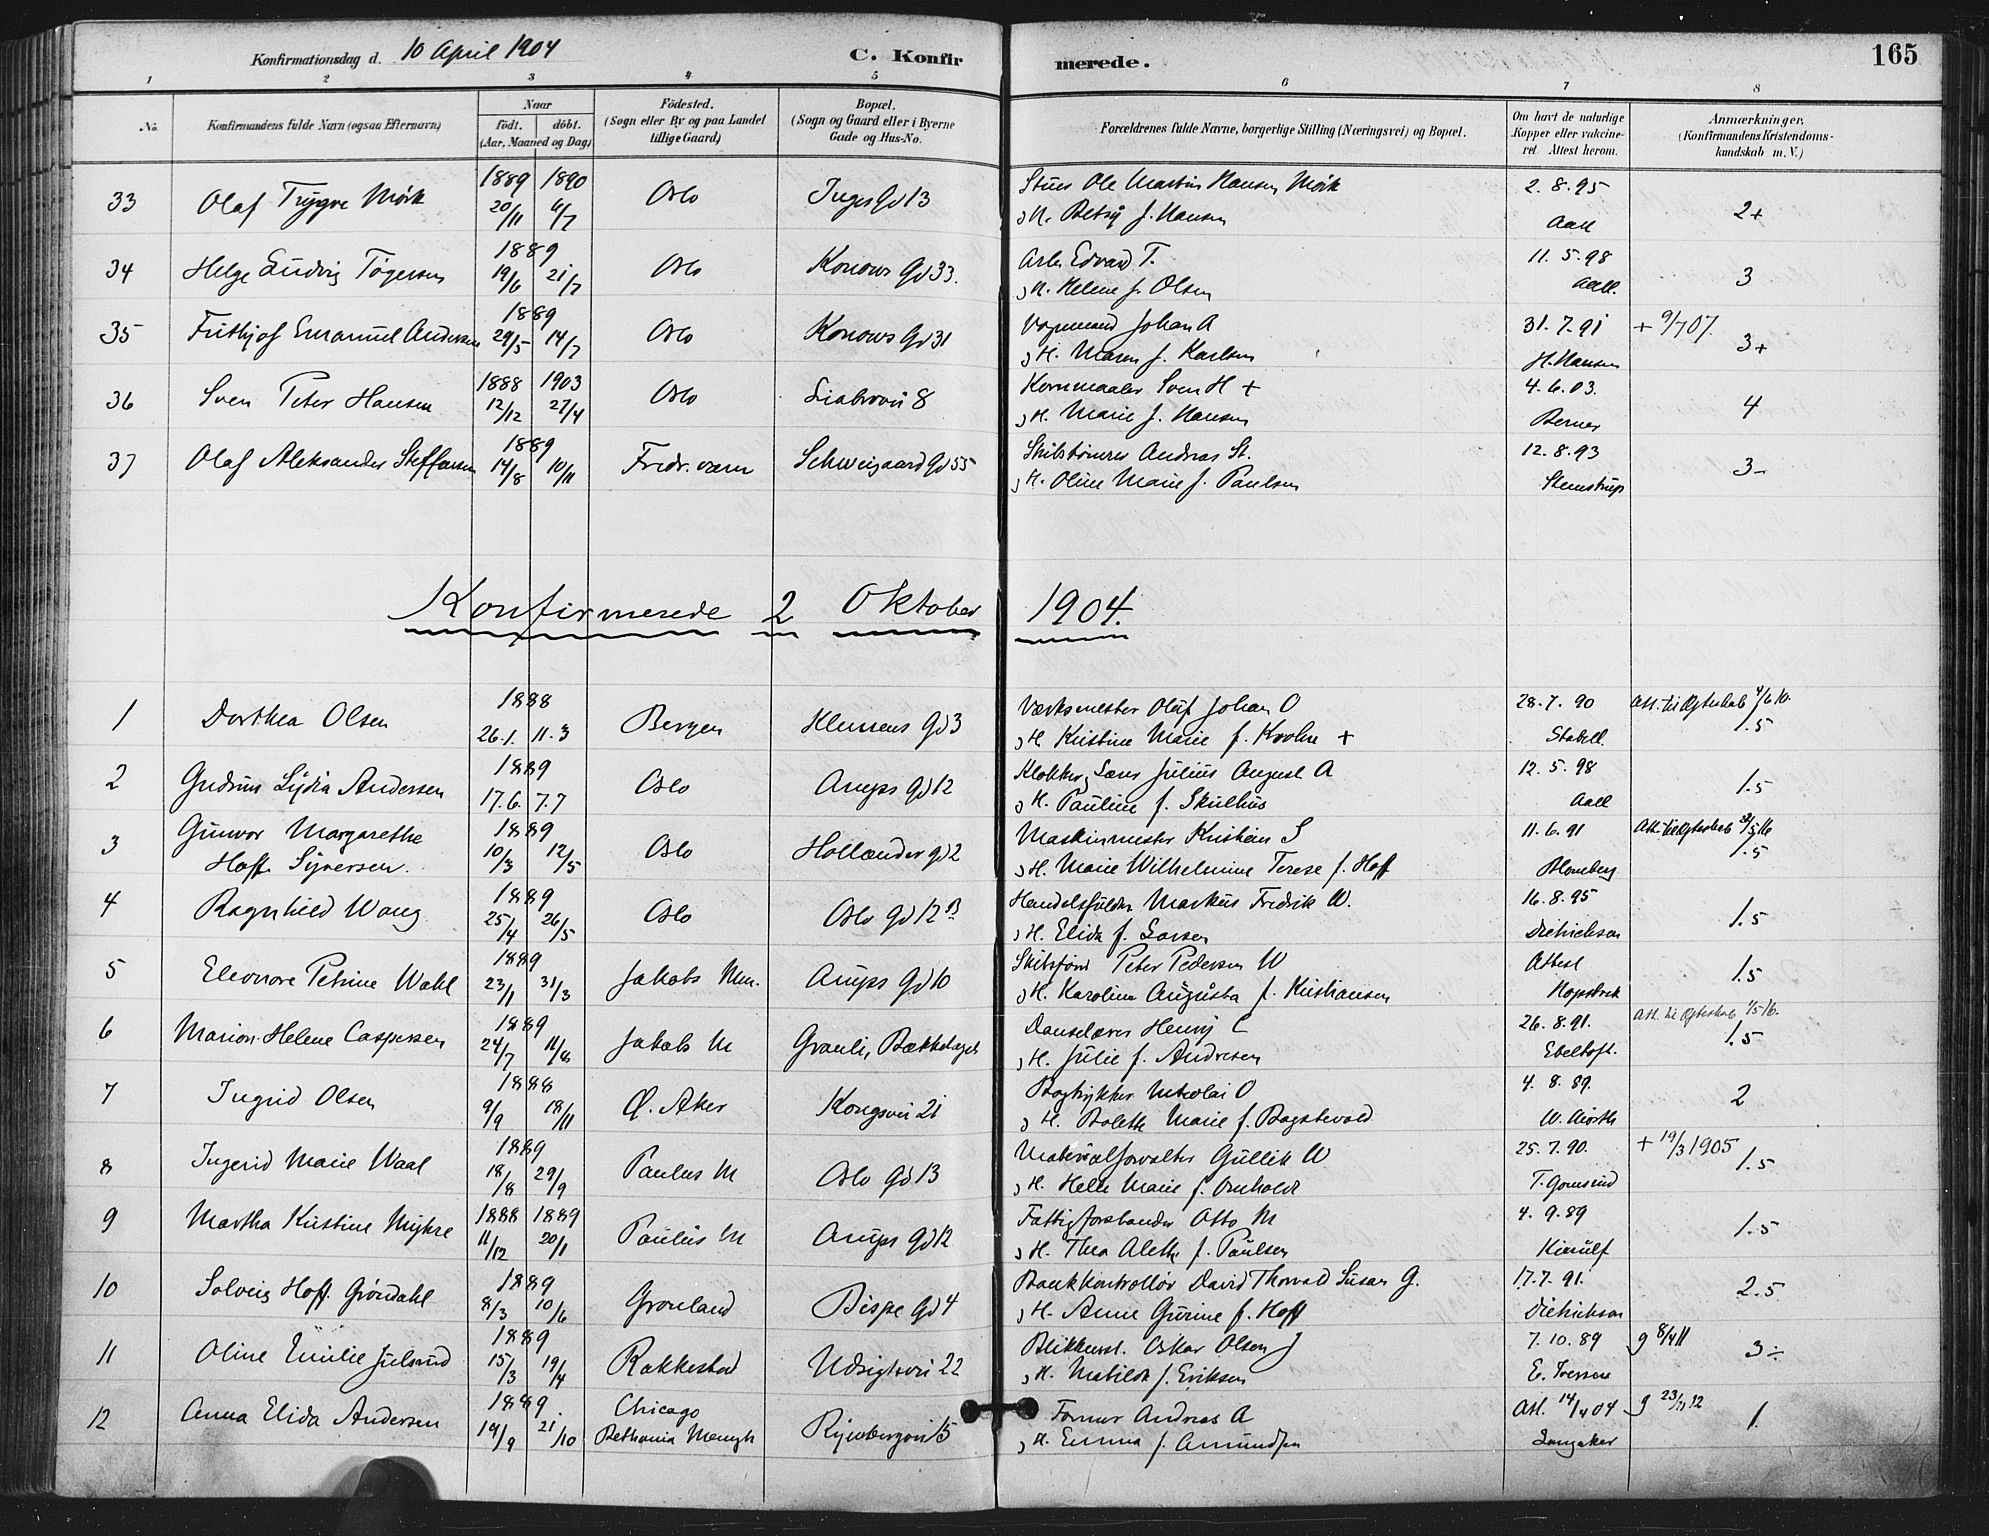 Konfirmationsdag d. 10 April 1904 C. Konfirmerede. 165
1 2 3 4 5 6 7 8
No. Konfirmandens fulde Navn (ogsaa Efternavn) Naar født. døbt. (Aar, Maaned og Dag) Fødested. (Sogn eller By og paa Landet tillige Gaard) Bopæl. (Sogn og Gaard eller i Byerne Gade og Hus-No. Forældrenes fulde Navne, borgerlige Stilling (Næringsvei) og Bopæl. Om havt de naturlige Kopper eller vakcineret. Attest herom. Anmærkninger. (Konfirmandens Kristendomskundskab m. V.)
33 Olaf Trygve Mørk 1889 20/11 1890 6/7 Oslo Inges Gd 13 Stuer Ole Martin Hansen Mørk 2.8.95
H. Betsy f. Hansen Aall 2+
34 Helge Ludvig Tøgersen 1889 19/6 21/7 Oslo Konows Gd 33. Arb. Edvard T. 11.5.98
H. Helene f. Olsen Aall. 3
35 Frithjof Emanuel Andersen 1889 29/5 14/7 Oslo Konows Gd 31 Vognmand Johan A 31.7.91 + 9/7 07.
H. Maren f. Karlsen H. Hansen 3+
36 Sven Peter Hansen 1888 12/12 1903 27/4 Oslo Liabrovei 8 Kornmaaler Sven H + 4.6.03.
H. Marie f. Hansen Berner 4
37 Olaf Aleksander Steffensen 1889 14/8 10/11 Fredr.værn Schweigaard Gd 55 Skibstømrer Andreas St. 12.8.93
H. Oline Marie f. Paulsen Steenstrup 3-
Konfirmerede 2 Oktober 1904.
1 Dorthea Olsen 1888 26.1. 11.3 Bergen Klemens Gd 3 Værksmester Oluf Johan O 28.7.90 Att. til Ægteskab 4/6 10.
H. Kristine Marie f. Krohn + Stabell. 1.5
2 Gudrun Lydia Andersen 1889 17.6. 7.7 Oslo Arups Gd 12 Klokker, Lærer Julius August A 12.5.98
H. Pauline f. Skulhus Aall 1.5
3 Gunvor Margarethe 1889 10/3 12/5 Oslo Hollænder gd 2 Maskinmester Kristian S 11.6.91 Att. til Ægteskab
Hoff Syversen. H. Marie Wilhelmine Terese f. Hoff Blomberg 1.5
4 Ragnhild Wang 1889 25/4 26/5 Oslo Oslo Gd 12 B Handelsfuldm Markus Fredrik W. 16.8.95
H. Elida f. Larsen Dietrichson 1.5
5 Eleonore Petrine Wahl 1889 23/1 31/3 Jakobs Men. Arups Gd 10 Skibsfører Peter Pedersen W Attest
H. Karoline Augusta f. Kristiansen Hopstock 1.5
6 Marion Helene Caspersen 1889 24/7 11/8 Jakobs M Granli, Bækkelaget Danselærer Henrij C 26.8.91. Att. til Ægteskab 1/5 16.
H. Julie f. Andresen Ebeltoft. 1.5
7 Ingrid Olsen 1888 9/9 18/11 Ø. Aker Kongsvei 21 Bogtrykker Nikolai O 4.8.89.
H. Bolette Marie f. Bagstevold 2
8 Ingerid Marie Waal 1889 18/8 29/9 Paulus M Oslo Gd 13 Materialforvalter Gullik W 25.7.90. + 19/3 1905
H. Helle Marie f. 1.5
9 Martha Kristine Myhre 1888 11/12 1889 20/1 Paulus M Arups Gd 12 Fattigforstander Otto M 4.9.89
H. Thea Alethe f. Paulsen Kierulf 1.5
10 Solveig Hoff Grøndahl 1889 8/3 10/6 Grønland Bispe Gd 4 Bankkontrollør David Thorvald Susan G. 17.7.91.
H. Anne Gurine f. Hoff Dietrichson 2.5
11 Oline Emilie Julsrud 1889 15/3 19/4 Rakkestad Udsigtsvei 22 Blikkensl. Oskar Olsen J 7.10.89 g 8/4 11
H. Matilde f. Eriksen E. Iversen 3÷
12 Anna Elida Andersen 1889. 19/9 21/10 Chicago Ryenbergvei 15 Former Andreas A Att. 14/4 04 g 23/11 12
Bethania Mengh H. Emma f. Amundsen Langaker 1